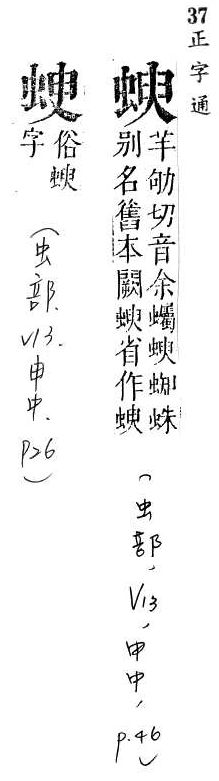 37正字通
羊劬切音余蠾蜘蛛
别名舊本闕省作
(虫部,V13,申中,p.46)
俗
字
(虫部.V13.申中.p26)